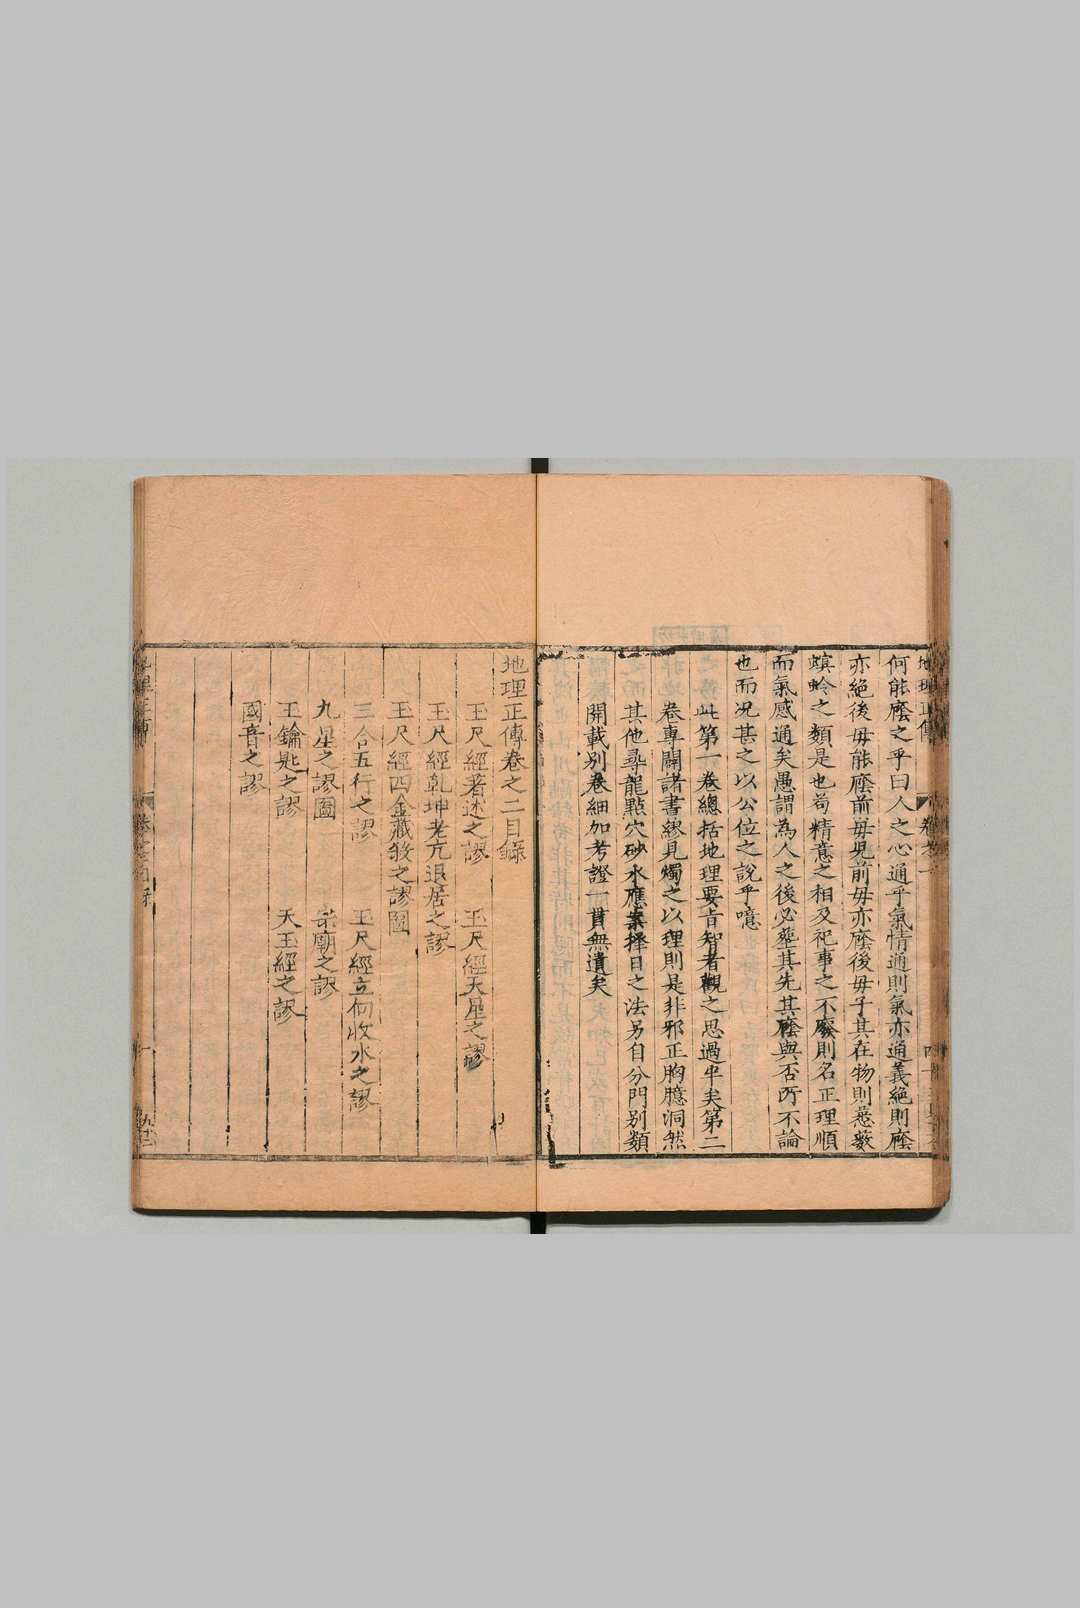 何能廕之乎曰人之心通乎氣情通則氣亦通義絕則廕
亦絕後母能廕前母兒前母亦廕後母子其在物則慈數
螟蛉之類是也苟精意之相及祀事之不廢則名正理順
而氣感通矣愚謂為人之後必塟其先其廕與否所不論
也而況甚之以公位之說乎噫
此第一卷總括地理要旨智者觀之思過半矣第二
卷專闢諸書繆見燭之以理則是非邪正胸臆洞然
其他尋龍點穴砂水應案擇日之法另自分門別類
開載別卷細加考證一貫無遺矣
地理正傳卷之二目錄
玉尺經著述之謬 玉尺經天星之謬
玉尺經乾坤老亢退居之謬
玉尺經四金藏殺之謬圖
三合五行之謬 玉尺經立向收水之謬
九星之謬圖 宗廟之謬
玉鑰匙之謬 天玉經之謬
國音之謬